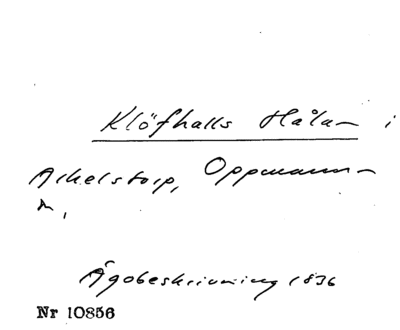 Klöfhalls Håla- i
Arkelstorp, Oppmanna-
h,
Ägobeskrivning 1836
Nr 10856